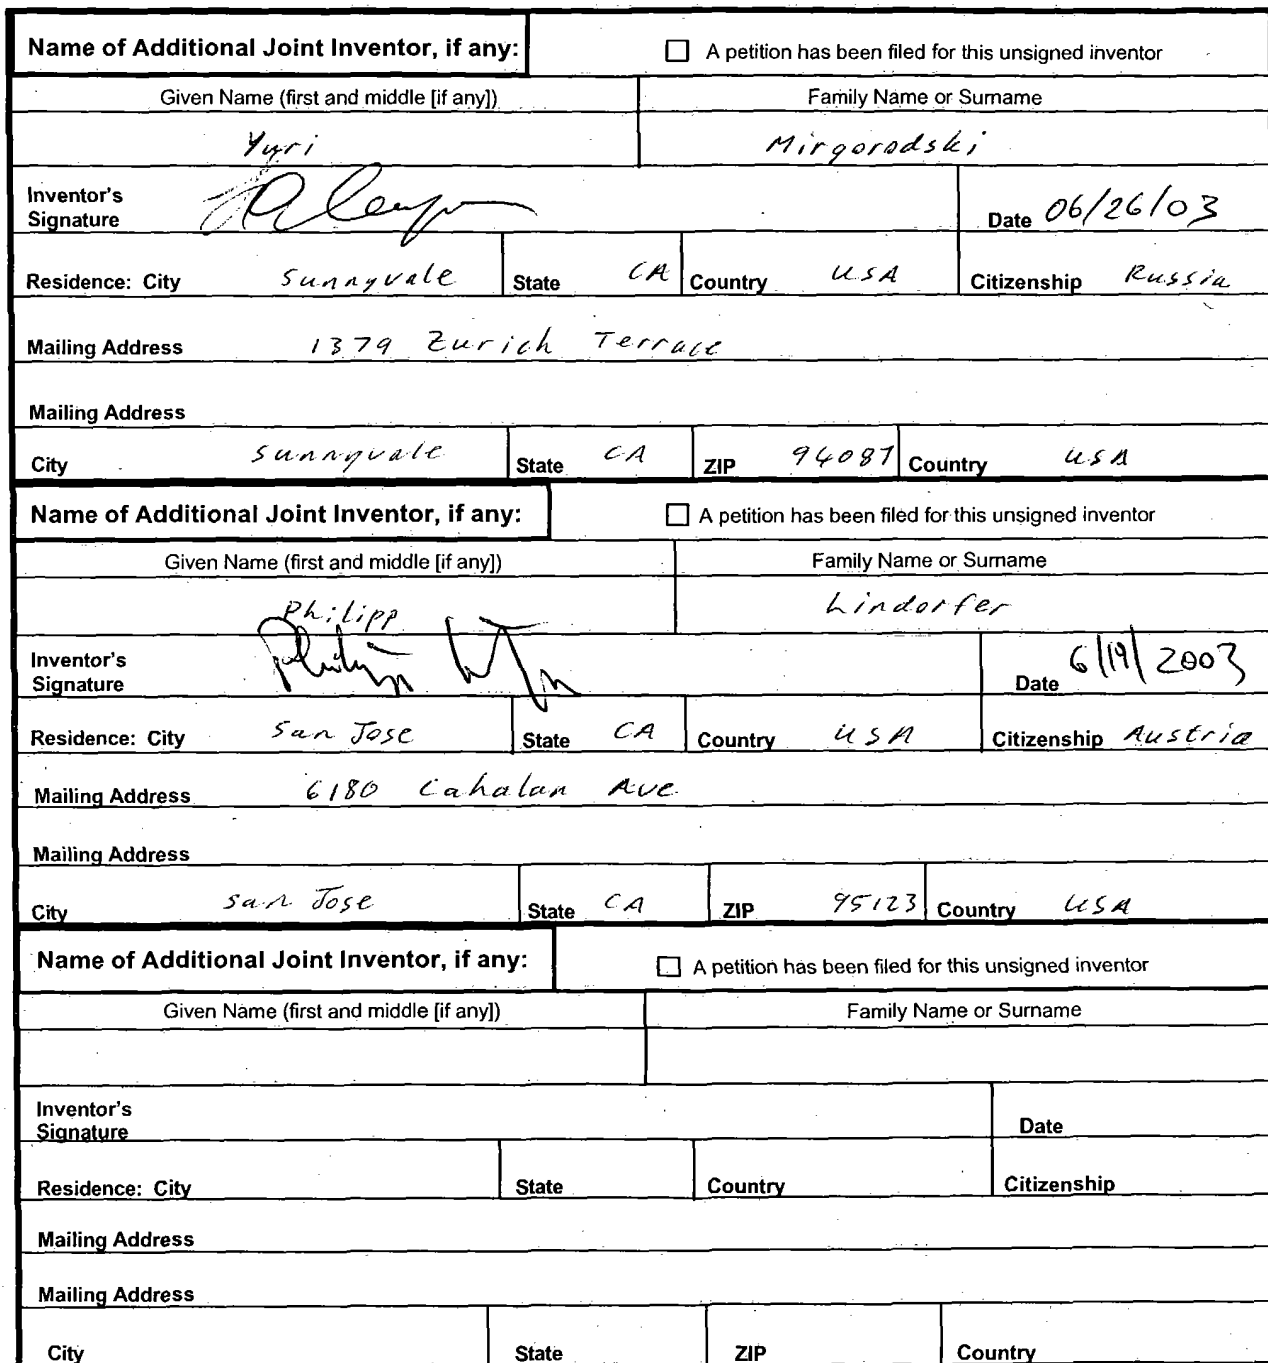 Name of Additional Joint Inventor, if any: ☐ A petition has been filed for this unsigned inventor
Given Name (first and middle [if any]) Family Name or Surname
Yuri Mirgorodski
Inventor's
Signature Date 06/26/03
Residence: City Sunnyvale State CA Country USA Citizenship Russia
Mailing Address 1379 Zurich Terrace
Mailing Address
City Sunnyvale State CA ZIP 94087 Country USA
Name of Additional Joint Inventor, if any: ☐ A petition has been filed for this unsigned inventor
Given Name (first and middle [if any]) Family Name or Surname
Philipp Lindorfer
Inventor's
Signature Date 6/19/2003
Residence: City San Jose State CA Country USA Citizenship Austria
Mailing Address 6180 Cahalan Ave.
Mailing Address
City San Jose State CA ZIP 95123 Country USA
Name of Additional Joint Inventor, if any: ☐ A petition has been filed for this unsigned inventor
Given Name (first and middle [if any]) Family Name or Surname
Inventor's
Signature Date
Residence: City State Country Citizenship
Mailing Address
Mailing Address
City State ZIP Country